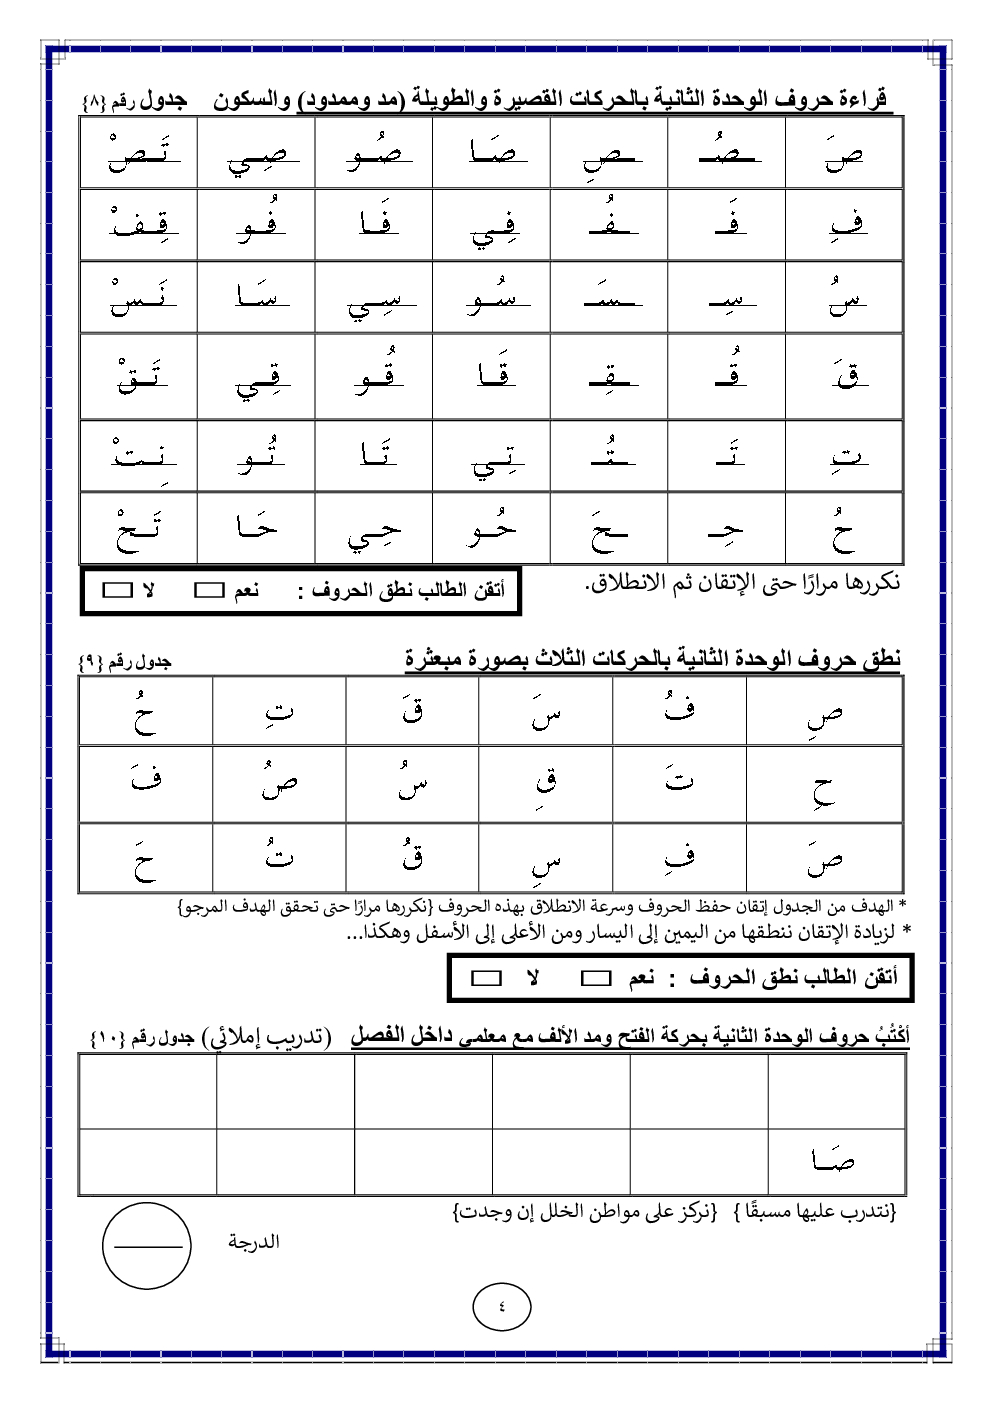 قراءة حروف الوحدة الثانية بالحركات القصيرة والطويلة (مد وممدود) والسكون جدول رقم {٨}
صَ ـصُـ ـصِ صَـا صُـو صِـي تَـصْ
فِ فَـ ـفُـ فِـي فَـا فُـو قِـفْ
سُ سِـ ـسَـ سُـو سِـي سَـا نَـسْ
قَ قُـ ـقِـ قَـا قُـو قِـي تَـقْ
تِ تَـ ـتُـ تِـي تَـا تُـو نِـتْ
حُ حِـ ـحَ حُـو حِـي حَـا تَـحْ
نكررها مرارًا حتى الإتقان ثم الانطلاق.
أتقن الطالب نطق الحروف : نعم لا
نطق حروف الوحدة الثانية بالحركات الثلاث بصورة مبعثرة جدول رقم {٩}
صِ فُ سَ قَ تِ حُ
حِ تَ قِ سُ صُ فَ
صَ فِ سِ قُ تُ حَ
* الهدف من الجدول إتقان حفظ الحروف وسرعة الانطلاق بهذه الحروف {نكررها مرارًا حتى تحقق الهدف المرجو}
* لزيادة الإتقان ننطقها من اليمين إلى اليسار ومن الأعلى إلى الأسفل وهكذا...
أتقن الطالب نطق الحروف : نعم لا
أكْتُبُ حروف الوحدة الثانية بحركة الفتح ومد الألف مع معلمي داخل الفصل (تدريب إملائي) جدول رقم {١٠}
صَـا
{نتدرب عليها مسبقًا } {نركز على مواطن الخلل إن وجدت}
الدرجة
٤